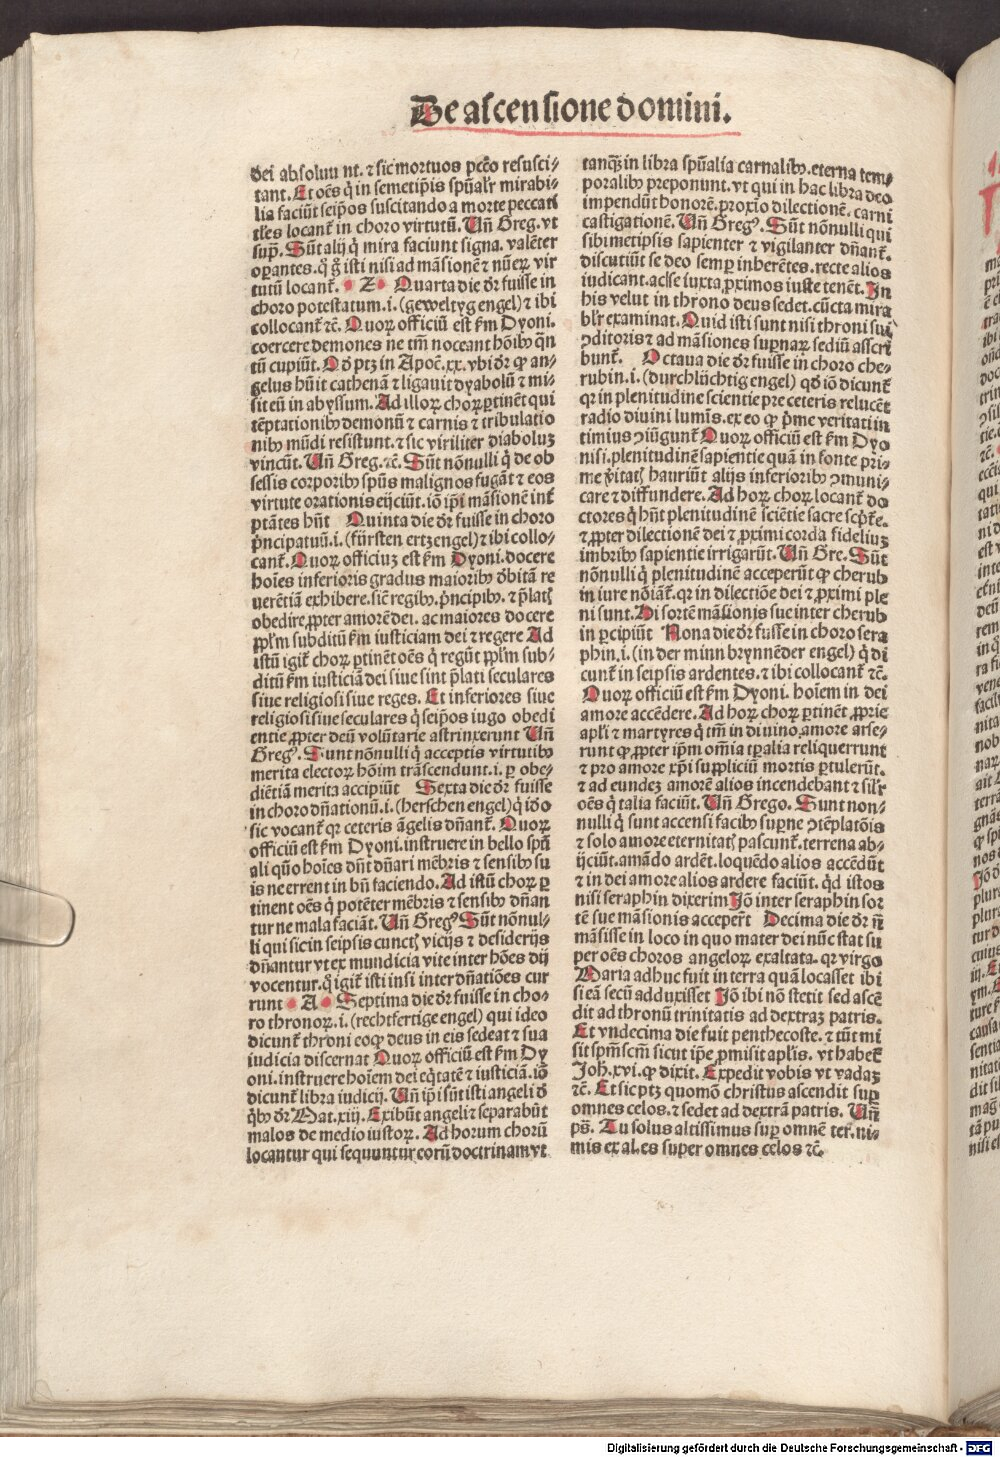 De ascensione domini.
dei absoluunt. ⁊ sic mortuos pctõ resusci⸗
tant. Et oẽs q̇ in semetip̃is spũalr̃ mirabi⸗
lia faciũt seip̃os suscitando a morte peccati
tĩes locanť in choro virtutũ. Uñ Greg. vt
sup̃. Sũt alij q̇ mira faciunt signa. valẽter
oꝑantes. q̇ g̊ isti nisi ad mãsionẽ ⁊ nũeꝝ vir
tutũ locanť. Z Quarta die dr̃ fuisse in
choro potestatum .i. (geweltyg engel) ⁊ ibi
collocanť ⁊c̃. Quoꝝ officiũ est ẜm Dyoni.
coercere demones ne tm̃ noceant hõibꝰ q̃n
tũ cupiũt. Qð ptꝫ in Apoc̃. xx. vbi dr̃ ꝙ an⸗
gelus hũit cathenã ⁊ ligauit dyabolũ ⁊ mi⸗
sit eũ in abyssum. Ad illoꝝ choꝝ ꝑtinẽt qui
tẽptationibꝰ demonũ ⁊ carnis ⁊ tribulatio
nibꝰ mũdi resistunt. ⁊ sic viriliter diaboluꝫ
vincũt. Uñ Greg. ⁊c̃. Sũt nõnulli q̇ de ob
sessis corporibꝰ spũs malignos fugãt ⁊ eos
virtute orationis eijciũt. iõ ip̃i mãsionẽ inť
ptãtes hñt Quinta die dr̃ fuisse in choro
pñcipatuũ .i. (fürsten ertzengel) ⁊ ibi collo⸗
canť. Quoꝝ officiuꝫ est ẜm Dyoni. docere
hoĩes inferioris gradus maioribꝰ ðbitã re
uerẽtiã exhibere. sic̃ regibꝰ. pñcipibꝰ. ⁊ p̃latꝭ
obedire, ꝓpter amorẽ dei. ac maiores docere
ppl̃m subditũ ẜm iusticiam dei ⁊ regere Ad
istũ igiť choꝝ ꝑtinẽt oẽs q̇ regũt ppl̃m sub⸗
ditũ ẜm iusticiã dei siue sint p̃lati seculares
siue religiosi siue reges. Et inferiores siue
religiosi siue seculares q̇ seip̃os iugo obedi
entie ꝓpter deũ volũtarie astrinxerunt Uñ
Gregꝰ. Sunt nõnulli q̇ acceptis virtutibꝰ
merita electoꝝ hõim trãscendunt .i. ꝑ obe⸗
diẽtiã merita accipiũt Sexta die dr̃ fuisse
in choro dñationũ .i. (herschen engel) q̇ iðo
sic vocanť qꝛ ceteris ãgelis dñanť. Quoꝝ
officiũ est ẜm Dyoni. instruere in bello spũ
ali qũo hoĩes dñt dñari mẽbris ⁊ sensibꝰ su
is ne errent in bñ faciendo. Ad istũ choꝝ ꝑ
tinent oẽs q̇ potẽter mẽbris ⁊ sensibꝰ dñan
tur ne mala faciãt. Uñ Gregꝰ Sũt nõnul⸗
li qui sic in seipsis cunctꝭ vicijs ⁊ desiderijs
dñantur vt ex mundicia vite inter hões dij
vocentur. q̇ igiť isti nisi inter dñatiões cur
runt A Septima die dr̃ fuisse in cho⸗
ro thronoꝝ .i. (rechtfertige engel) qui ideo
dicunť throni eo ꝙ deus in eis sedeat ⁊ sua
iudicia discernat Quoꝝ officiũ est ẜm Dy
oni. instruere hoĩem dei eq̇tatẽ ⁊ iusticiã. iõ
dicunť libra iudicij. Uñ ip̃i sũt isti angeli ð
q̇bꝰ dr̃ Mat. xiij. Exibũt angeli ⁊ separabũt
malos de medio iustoꝝ. Ad horum chorũ
locantur qui sequuntur eorũ doctrinam vt
tanq̃ꝫ in libra spũalia carnalibꝰ. eterna tem⸗
poralibꝰ preponunt. vt qui in hac libra deo
impendũt honorẽ. proxĩo dilectionẽ. carni
castigationẽ. Uñ Gregꝰ. Sũt nonnulli qui
sibimetipsis sapienter ⁊ vigilanter dñanť.
discutiũt se deo semꝑ inherẽtes. recte alios
iudicant. ac se iuxta proximos iuste tenẽt. In
his velut in throno deus sedet. cũcta mira
bl̃r examinat. Quid isti sunt nisi throni sui
ꝯditoris ⁊ ad mãsiones supnaꝝ sediũ asscri
bunť. Octaua die dr̃ fuisse in choro che⸗
rubin .i. (durchlüchtig engel) qð iõ dicunť
qꝛ in plenitudine scientie pre ceteris relucẽt
radio diuini lumĩs. ex eo ꝙ p̃me veritati in
timius ꝯiũgunť Quoꝝ officiũ est ẜm Dyo
nisi. plenitudinẽ sapientie quã in fonte pri⸗
me v̇itatꝭ hauriũt alijs inferioribꝰ ꝯmuni⸗
care ⁊ diffundere. Ad hoꝝ choꝝ locanť do
ctores q̇ hñt plenitudinẽ sciẽtie sacre sc̃pťe.
⁊ ꝓpter dilectionẽ dei ⁊ ꝓximi corda fideliuꝫ
imbribꝰ sapientie irrigarũt. Uñ Gre. Sũt
nõnulli q̇ plenitudinẽ acceperũt ꝙ cherub
in iure noĩanť. qꝛ in dilectiõe dei ⁊ ꝓximi ple
ni sunt. Hi sortẽ mãsionis sue inter cherub
in ꝑcipiũt Nona die dr̃ fuisse in choro sera
phin .i. (in der minn brynnẽder engel) q̇ di
cunť in seipsis ardentes. ⁊ ibi collocanť ⁊c̃.
Quoꝝ officiũ est ẜm Dyoni. hoĩem in dei
amore accẽdere. Ad hoꝝ choꝝ ꝑtinẽt ꝓprie
apl̃i ⁊ martyres q̇ tm̃ in diuino amore arse⸗
runt ꝙ ꝓpter ip̃m om̃ia tꝑalia reliquerrunt
⁊ pro amore xp̃i suppliciũ mortis ꝑtulerũt.
⁊ ad eundeꝫ amorẽ alios incendebant ⁊ sil̃r
oẽs q̇ talia faciũt. Uñ Grego. Sunt non⸗
nulli q̇ sunt accensi facibꝰ supne ꝯtẽplatõis
⁊ solo amore eternitatꝭ pascunť. terrena ab⸗
ijciũt. amãdo ardẽt. loquẽdo alios accẽdũt
⁊ in dei amore alios ardere faciũt. q̇d istos
nisi seraphin dixerim Iõ inter seraphin sor
tẽ sue mãsionis acceper̃t Decima die dr̃ ñ
mãsisse in loco in quo mater dei nũc stat su
per oẽs choros angeloꝝ exaltata. qꝛ virgo
Maria adhuc fuit in terra quã locasset ibi
si eã secũ adduxisset Iõ ibi nõ stetit sed ascẽ
dit ad thronũ trinitatis ad dextraꝫ patris.
Et vndecima die fuit penthecoste. ⁊ tũt mi
sit spm̃ scm̃ sicut ip̃e ꝓmisit apl̃is. vt habeť
Joh̃. xvi. ꝙ dixit. Expedit vobis vt vadaꝫ
⁊c̃. Et sic ptꝫ quomõ christus ascendit suꝑ
omnes celos. ⁊ sedet ad dextrã patris. Uñ
ps̃. Tu solus altissimus suꝑ omnẽ ter. ni⸗
mis exal. es super omnes celos ⁊c̃.
Digitalisierung gefördert durch die Deutsche Forschungsgemeinschaft - DFG